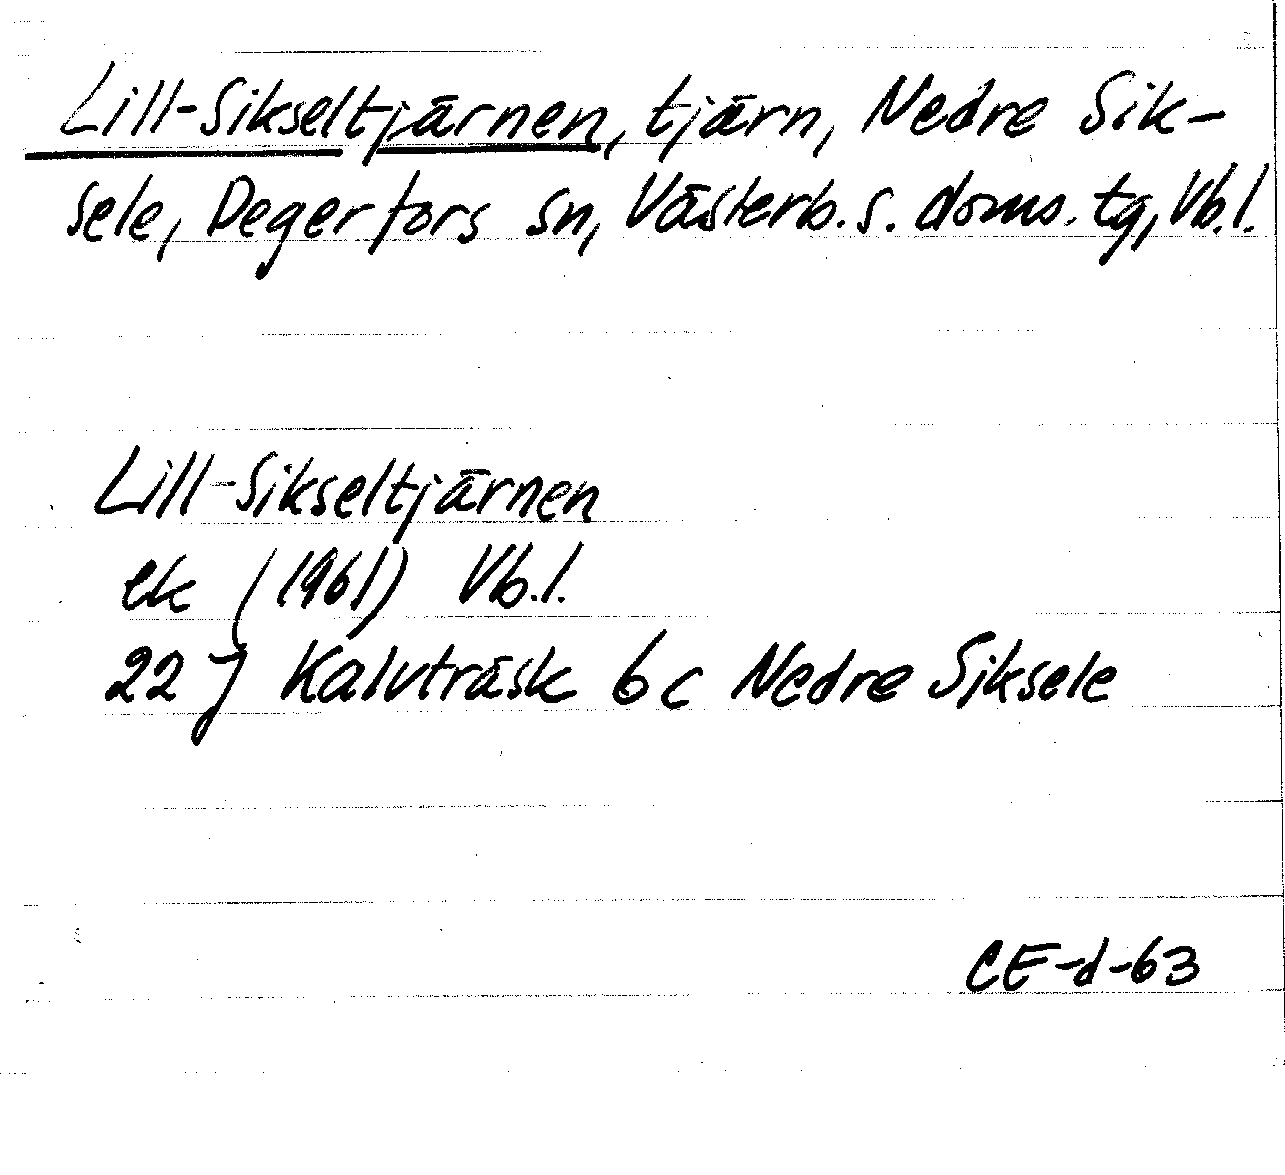 Lill-Sikseltjärnen, tjärn, Nedre Sik-
sele, Degerfors sn, Västerb. s. doms. tg, Vb.l.
Lill-Sikseltjärnen
ek (1961) Vb.l.
22 J Kalvträsk 6c Nedre Siksele
CE-d-63